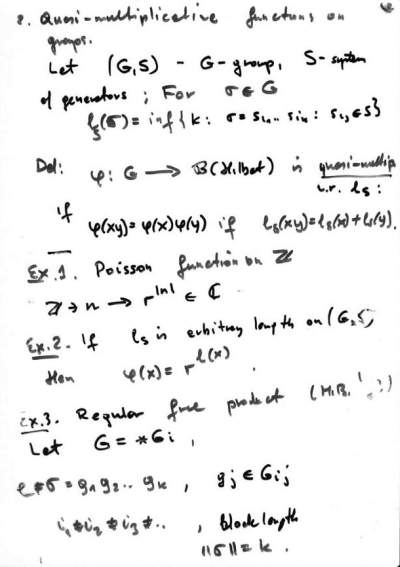 2. Quasi-multiplicative functions on
groups.
Let (G,S) - G-group, S-system
of generators; For σ∈G
l_S(σ) = inf{k: σ = s_{i1}... s_{ik} : s_{ij}∈S}
Def: φ: G → B(Hilbert) is quasi-multip
w.r. l_S :
if φ(xy)=φ(x)φ(y) if l_S(xy)=l_S(x)+l_S(y).
Ex.1. Poisson function on ℤ
ℤ∋n → r^{|n|} ∈ ℂ
Ex.2. If l_S is arbitrary length on (G,S)
then φ(x) = r^{l(x)}.
Ex.3. Regular free product (M.B.
Let G = *G_i ,
e≠σ = g_1 g_2 .. g_k , g_j ∈ G_{i_j}
i_1≠i_2≠i_3≠.. , block length
||σ|| = k .